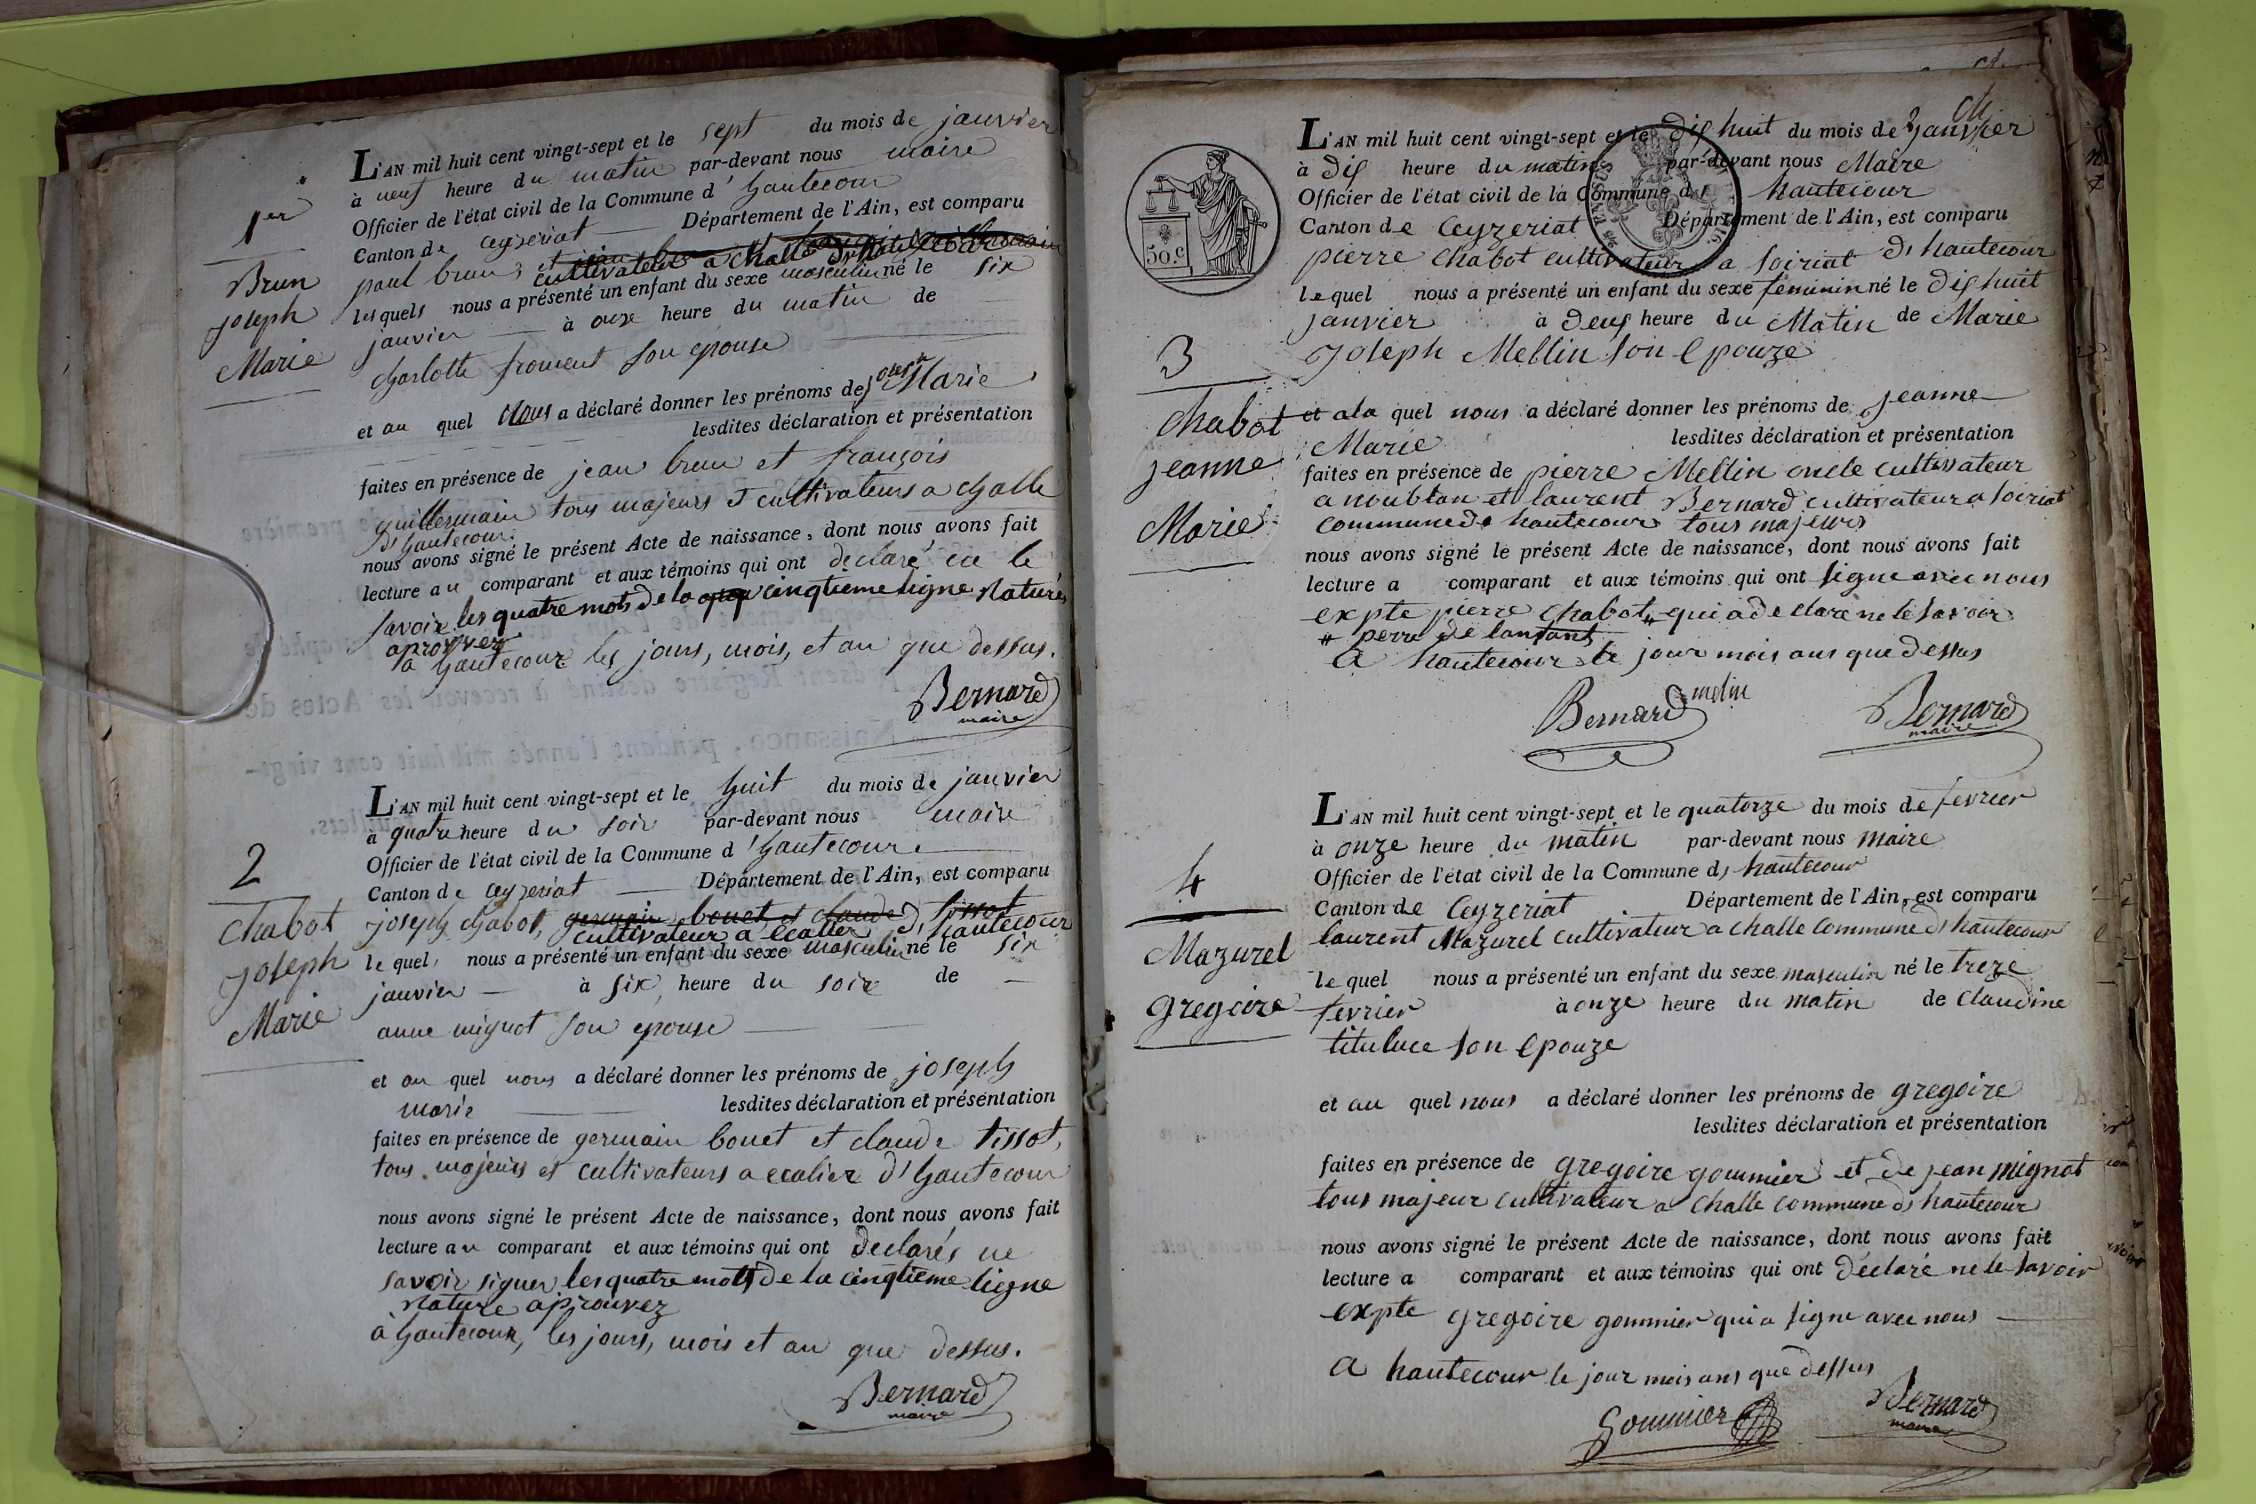 L'AN mil huit cent vingt-sept et le sept du mois de janvier
à neuf heure du matin par-devant nous maire
Officier de l'état civil de la Commune d'hautecour
Canton de Ceyzeriat Département de l'Ain, est comparu
paul brun,
cultivateur a challe
lesquels nous a présenté un enfant du sexe masculin né le six
janvier à onze heure du matin de
charlotte froment son epouse
et au quel nous a déclaré donner les prénoms de joseph Marie
lesdites déclaration et présentation
faites en présence de jean brun et françois
guillermain tous majeurs et cultivateurs a challe
d'hautecour.
nous avons signé le présent Acte de naissance, dont nous avons fait
lecture au comparant et aux témoins qui ont declaré ne le
savoir les quatre mots de la cinqtieme ligne raturés
aprouvez
a hautecour les jours, mois, et an que dessus.
Bernard
maire
1er
Brun
joseph
Marie
L'AN mil huit cent vingt-sept et le huit du mois de janvier
à quatre heure du soir par-devant nous maire
Officier de l'état civil de la Commune d'hautecour
Canton de Ceyzeriat Département de l'Ain, est comparu
joseph chabot, germain bouet et claude tissot
cultivateur a ecalier d'hautecour
le quel, nous a présenté un enfant du sexe masculin né le six
janvier à six heure du soir de
anne mignot son epouse
et au quel nous a déclaré donner les prénoms de joseph
marie lesdites déclaration et présentation
faites en présence de germain bouet et claude tissot,
tous majeurs et cultivateurs a ecalier d'hautecour
nous avons signé le présent Acte de naissance, dont nous avons fait
lecture au comparant et aux témoins qui ont declarés ne
savoir signer les quatre mots de la cinqtieme ligne
rature aprouvez
à hautecour, les jours, mois et an que dessus.
Bernard
maire
2
Chabot
joseph
Marie
L'AN mil huit cent vingt-sept et le dis huit du mois de Janvier
à dis heure du matin par-devant nous Maire
Officier de l'état civil de la Commune d, hautecour
Canton de Ceyzeriat Département de l'Ain, est comparu
pierre chabot cultivateur a soiriat d, hautecour
le quel nous a présenté un enfant du sexe feminin né le dis huit
janvier à deus heure du Matin de Marie
joseph Mellin son epouze
et a la quel nous a déclaré donner les prénoms de jeanne
Marie lesdites déclaration et présentation
faites en présence de pierre Mellin oncle cultivateur
a noublan et laurent Bernard cultivateur a soiriat
commune d, hautecour tous majeurs
nous avons signé le présent Acte de naissance, dont nous avons fait
lecture a comparant et aux témoins qui ont signe avec nous
expte pierre chabot qui a de claré ne le savoir
perre de lanfant
A hautecour le jour mois ans que dessus
Bernard melin Bernard
maire
50.c
3
Chabot
jeanne
Marie
L'AN mil huit cent vingt-sept et le quatorze du mois de fevrier
à onze heure du matin par-devant nous maire
Officier de l'état civil de la Commune d, hautecour
Canton de Ceyzeriat Département de l'Ain, est comparu
laurent Mazurel cultivateur a challe commune d, hautecour
le quel nous a présenté un enfant du sexe masculin né le treze
fevrier à onze heure du matin de claudine
tituluce son epouze
et au quel nous a déclaré donner les prénoms de gregoire
lesdites déclaration et présentation
faites en présence de gregoire gommier et de jean mignot
tous majeur cultivateur a challe commune d, hautecour
nous avons signé le présent Acte de naissance, dont nous avons fait
lecture a comparant et aux témoins qui ont déclaré ne le savoir
expte gregoire gommier qui a signe avec nous
A hautecour le jour mois ans que dessus
Gommier Bernard
maire
4
Mazurel
gregoire